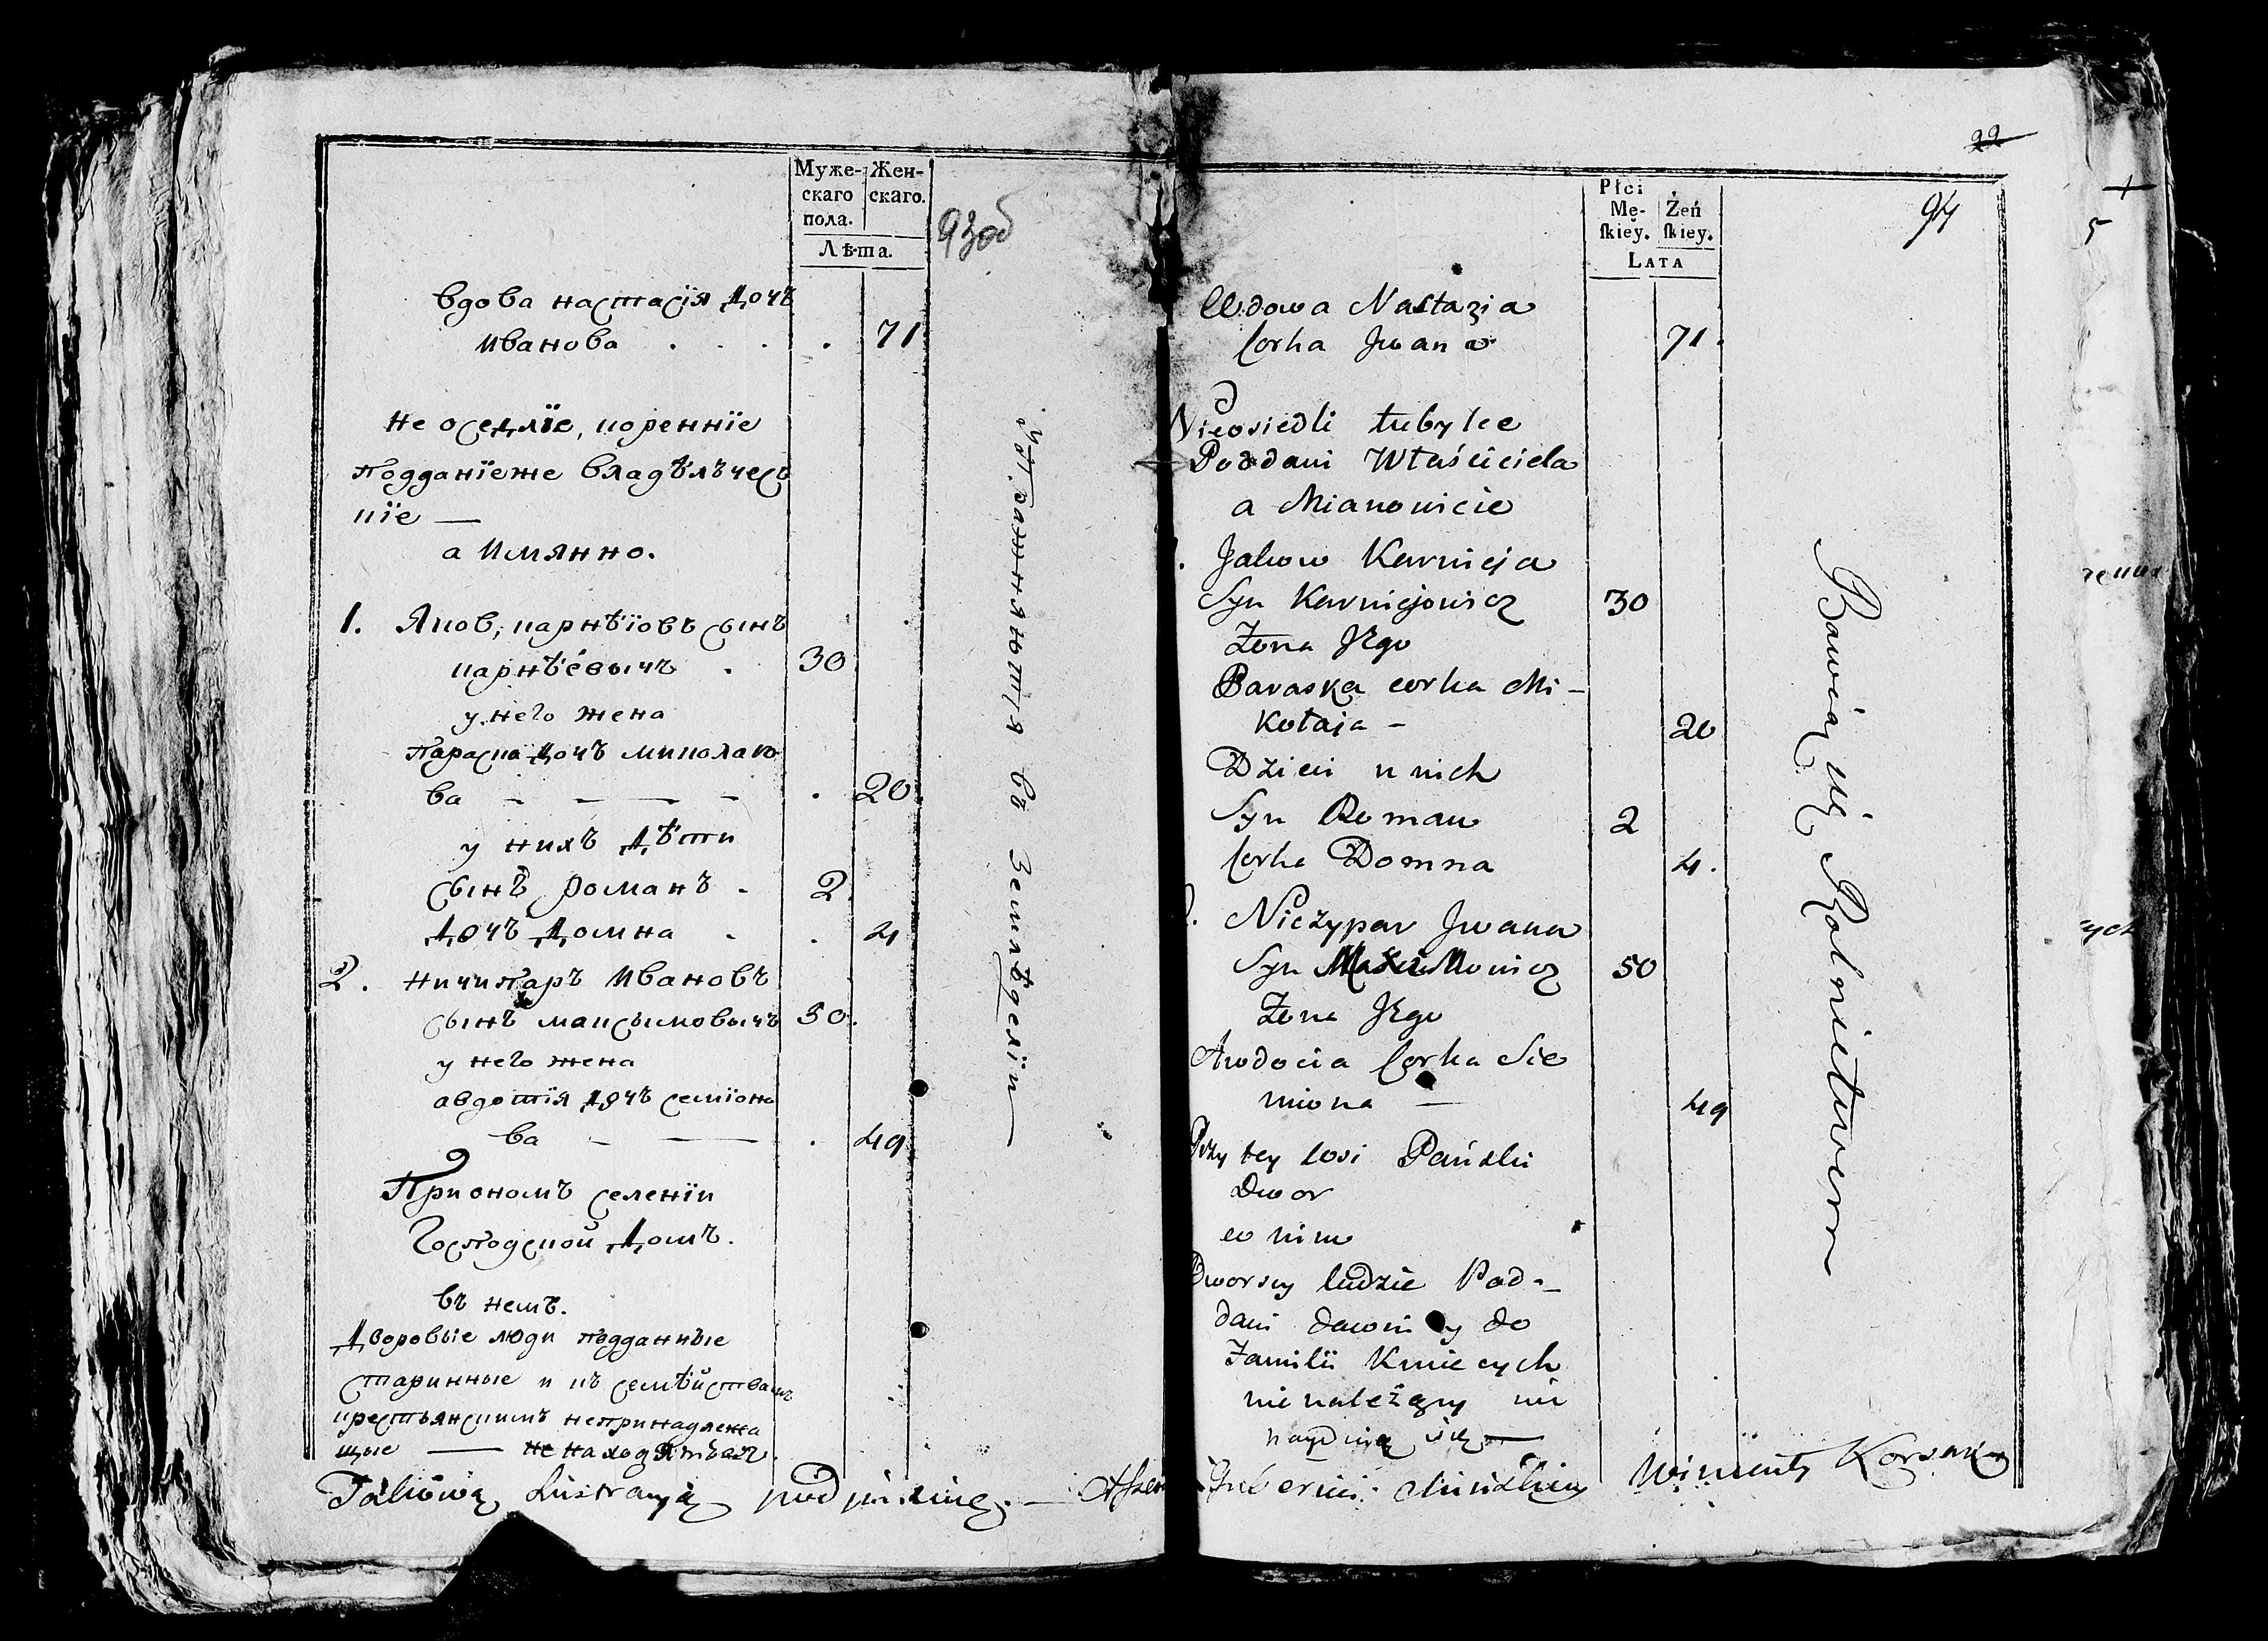 Муже-
скаго
пола.
Жен-
скаго.
Лѣта.
93об
вдова настасія дочъ
иванова . . . . 71
не оседлїе, коренніе
подданїеже владѣлъчесъ
кїе —
а имянно.
1. Яков, карнѣїовъ сынъ
карнѣевычъ . 30
у него жена
параска дочъ миколаю
ва - - - - . 20
у нихъ дѣти
сынъ романъ . 2
дочъ домна . . 4
2. ничипаръ ивановъ
сынъ максымовычъ 50.
у него жена
авдотїя дочъ семїоно
ва - — . 49
При ономъ селенїи
Господской домъ.
въ немъ.
дворовые люди подданные
старинные и къ семѣйствамъ
крестьянскимъ непринадлежа
щые —
въ земледелїи —
Płci
Mę-
ſkiey.
Żeń
ſkiey.
LATA
22
94
Wdowa Nastazia
Corka Jwana 71.
Nieosiedli tubylce
Poddani Właściciela
a Mianowicie
Jakow Karnieja
Syn Karniejowicz 30
Żona Jego
Paraska corka Mi-
kołaja - 20
Dzieci u nich
Syn Roman 2
Corka Domna 4.
Niczypar Jwana
Syn 50
Żona Jego
Awdocia Corka Sie
miona — 49
Przy tey wsi Pański
Dwor
w nim
Dworscy ludzie Pod-
dani dawni y do
Familii Kmiecych
nie należący nie
naydują się —
Bawią się Rolnictwem
Takową Lustracyą podpisuię. —
Gubernii Minskiey Wincenty Korsak